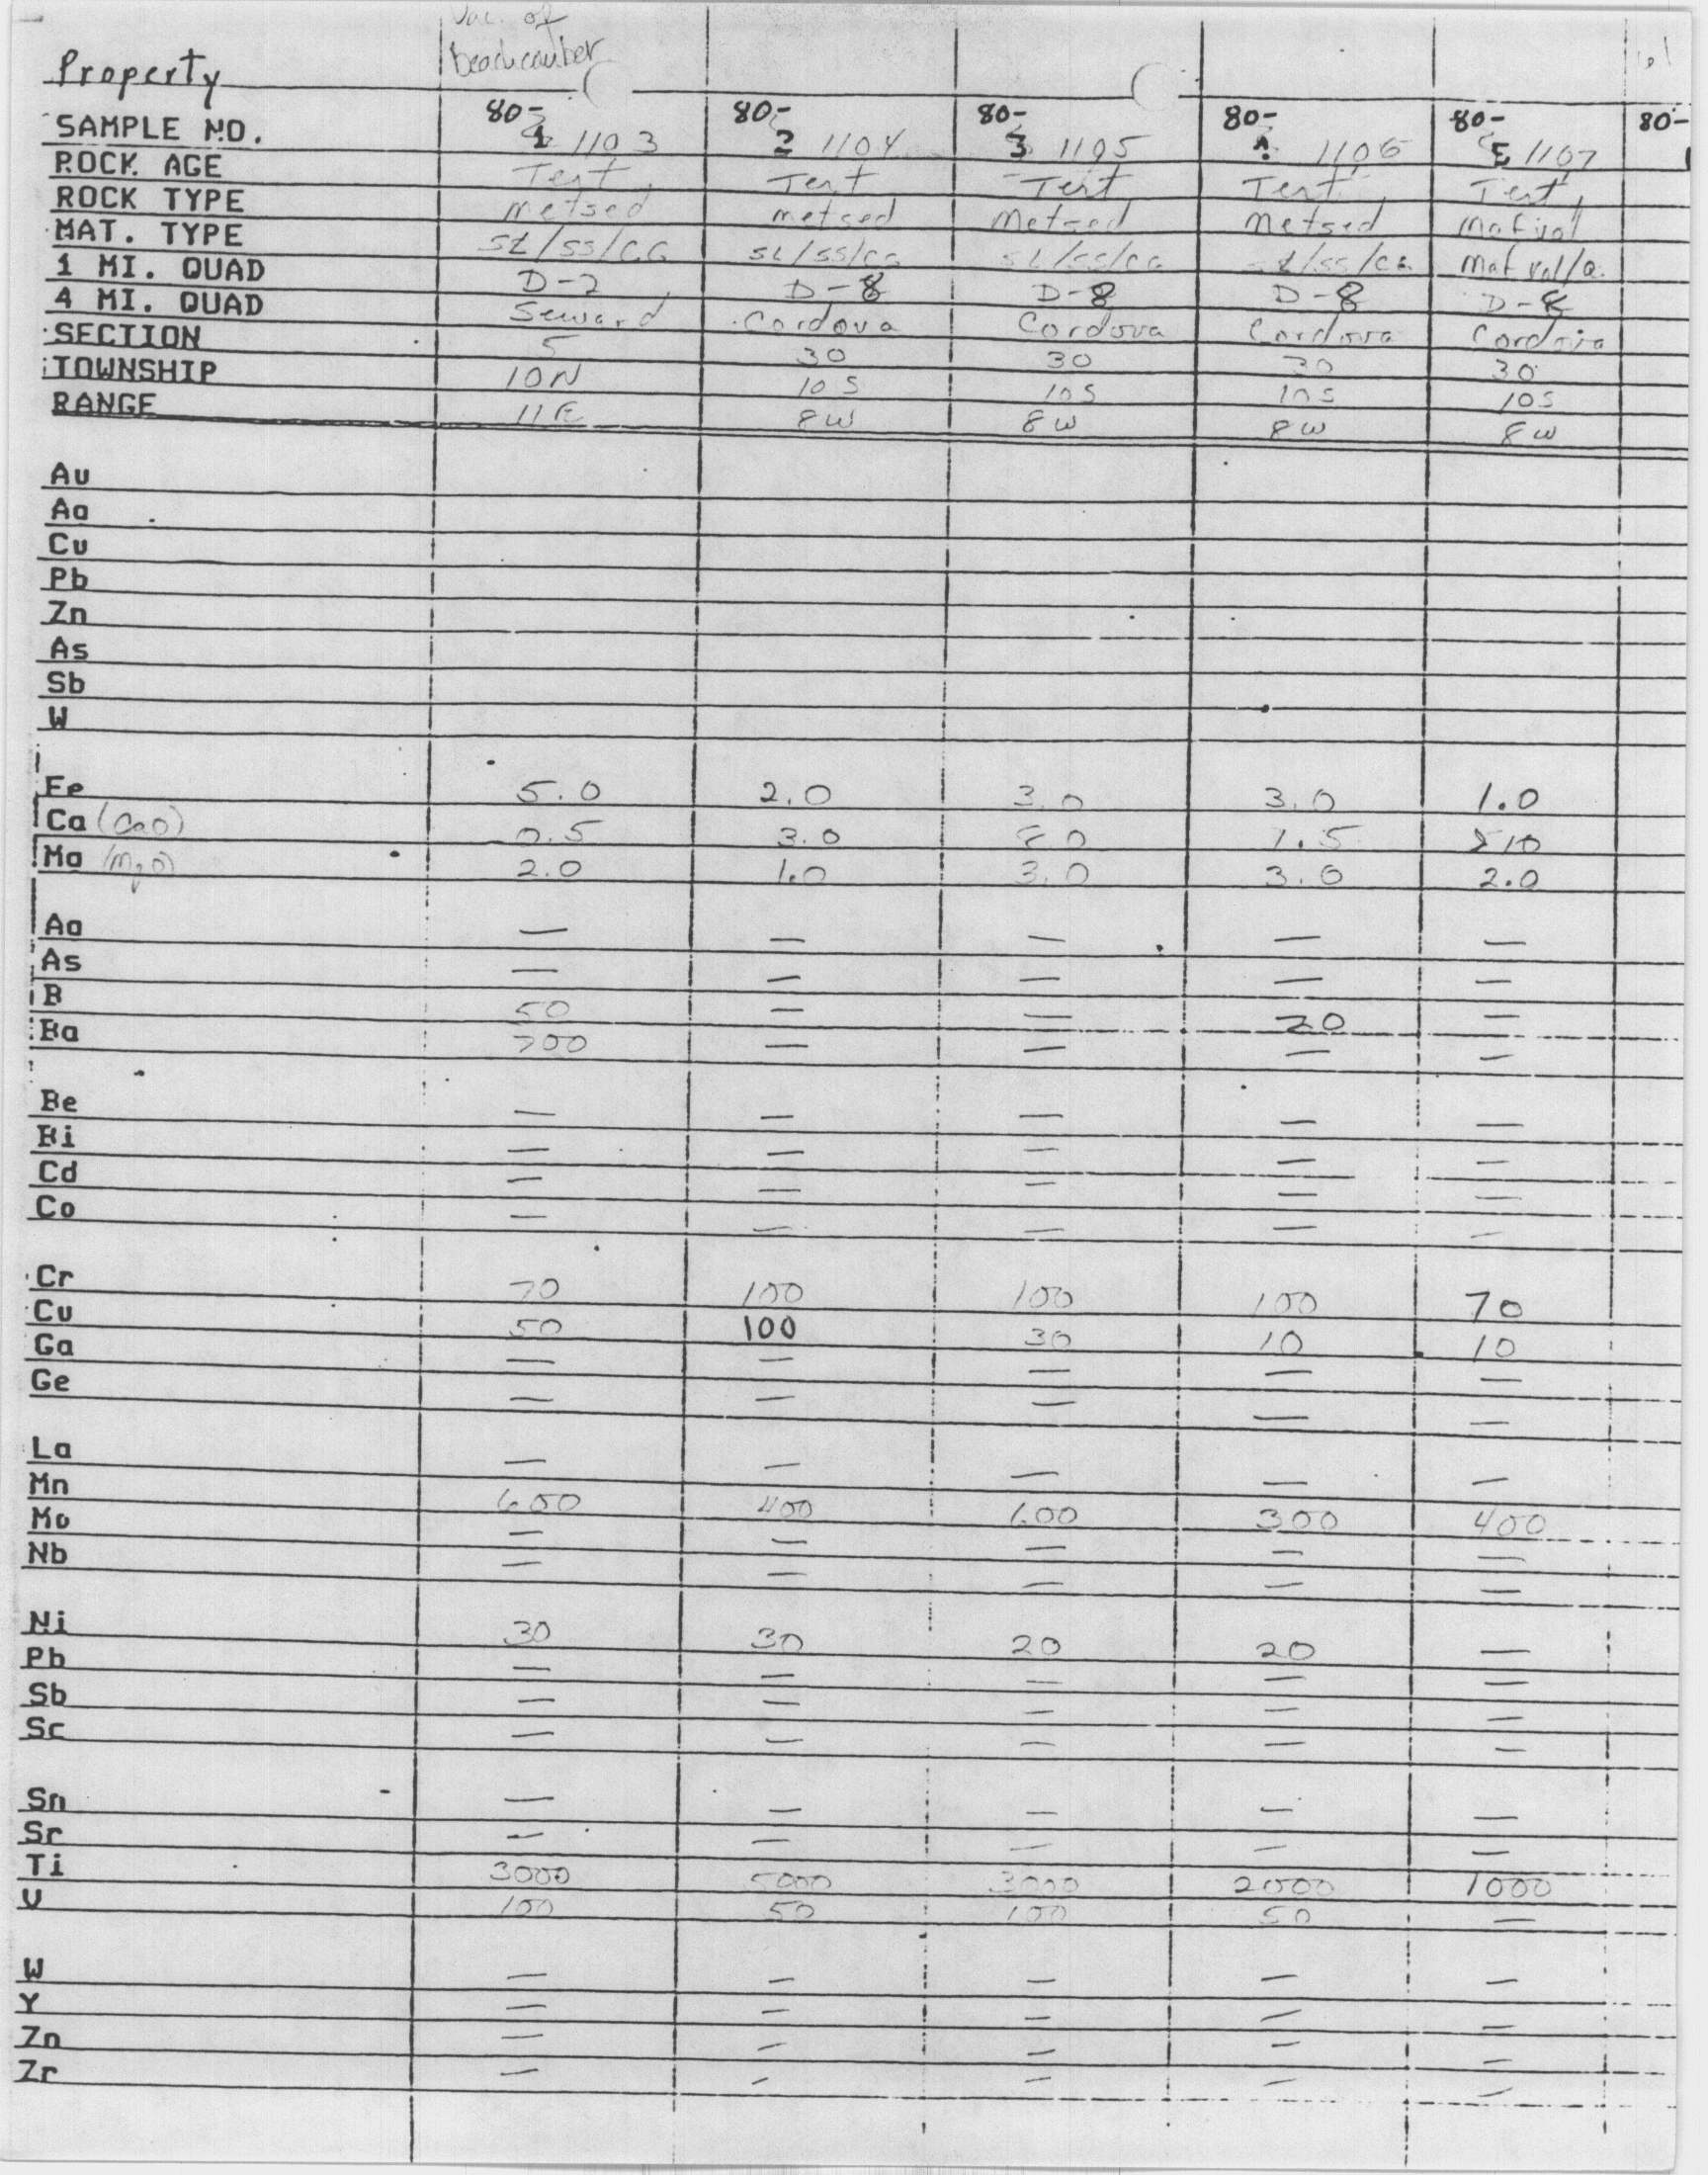 Vac. of
Beachcomber
Property
SAMPLE NO. 80-1 1103 80-2 1104 80-3 1105 80- 1106 80-5 1107 80-
ROCK AGE Tert, Tert Tert, Tert, Tert,
ROCK TYPE metsed metsed Metsed Metsed Mafvol
MAT. TYPE SL/SS/CG SL/SS/CG SL/SS/CG SL/SS/CG Maf vol/Q
1 MI. QUAD D-2 D-8 D-8 D-8 D-8
4 MI. QUAD Seward Cordova Cordova Cordova Cordova
SECTION 5 30 30 30 30
TOWNSHIP 10N 10S 10S 10S 10S
RANGE 11E 8W 8W 8W 8W
Au
Ag
Cu
Pb
Zn
As
Sb
W
Fe 5.0 2.0 3.0 3.0 1.0
Ca (CaO) 0.5 3.0 1.5 10
Mg (MgO) 2.0 1.0 3.0 3.0 2.0
Ag — — — — —
As — — — — —
B 50 — — 20 —
Ba 700 — — — —
Be — — — — —
Bi — — — — —
Cd — — — — —
Co — — — — —
Cr 70 100 100 100 70
Cu 50 100 30 10 10
Ga — — — — —
Ge — — — — —
La — — — — —
Mn 600 400 600 300 400
Mo — — — — —
Nb — — — — —
Ni 30 30 20 20 —
Pb — — — — —
Sb — — — — —
Sc — — — — —
Sn — — — — —
Sr — — — — —
Ti 3000 5000 3000 2000 1000
V 100 50 100 50 —
W — — — — —
Y — — — — —
Zn — — — — —
Zr — — — — —